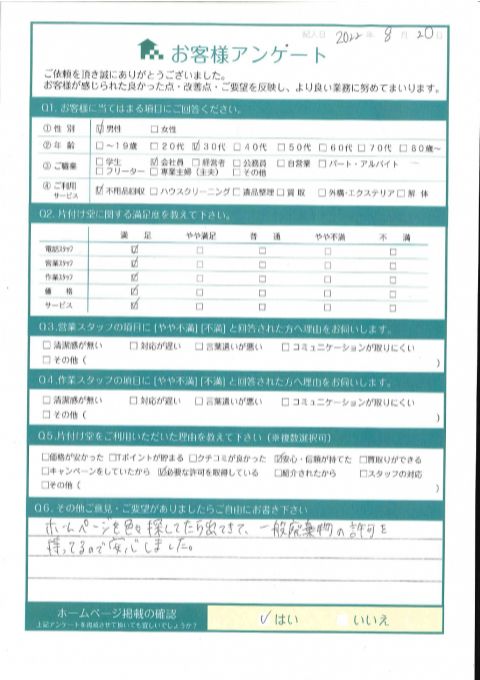 記入日 2022年 8月 20日
お客様アンケート
ご依頼を頂き誠にありがとうございました。
お客様が感じられた良かった点・改善点・ご要望を反映し、より良い業務に努めてまいります。
Q1. お客様に当てはまる項目にご回答ください。
①性 別 ☑男性 □女性
②年 齢 □～19歳 □20代 ☑30代 □40代 □50代 □60代 □70代 □80歳～
③ご職業 □学生 ☑会社員 □経営者 □公務員 □自営業 □パート・アルバイト
□フリーター □専業主婦（主夫） □その他
④ご利用サービス ☑不用品回収 □ハウスクリーニング □遺品整理 □買 取 □外構・エクステリア □解 体
Q2. 片付け堂に関する満足度を教えて下さい。
満 足 やや満足 普 通 やや不満 不 満
電話スタッフ ☑ □ □ □ □
営業スタッフ ☑ □ □ □ □
作業スタッフ ☑ □ □ □ □
価 格 ☑ □ □ □ □
サービス ☑ □ □ □ □
Q3. 営業スタッフの項目に [やや不満] [不満] と回答された方へ理由をお伺いします。
□清潔感が無い □対応が遅い □言葉遣いが悪い □コミュニケーションが取りにくい
□その他（ ）
Q4. 作業スタッフの項目に [やや不満] [不満] と回答された方へ理由をお伺いします。
□清潔感が無い □対応が遅い □言葉遣いが悪い □コミュニケーションが取りにくい
□その他（ ）
Q5. 片付け堂をご利用いただいた理由を教えて下さい（※複数選択可）
□価格が安かった □Tポイントが貯まる □クチコミが良かった ☑安心・信頼が持てた □買取りができる
□キャンペーンをしていたから ☑必要な許可を取得している □紹介されたから □スタッフの対応
□その他（ ）
Q6. その他ご意見・ご要望がありましたらご自由にお書き下さい
ホームページを色々探してたら出てきて、一般廃棄物の許可を
持ってるので安心しました。
ホームページ掲載の確認 ☑はい □いいえ
上記アンケートを掲載させて頂いても宜しいでしょうか？